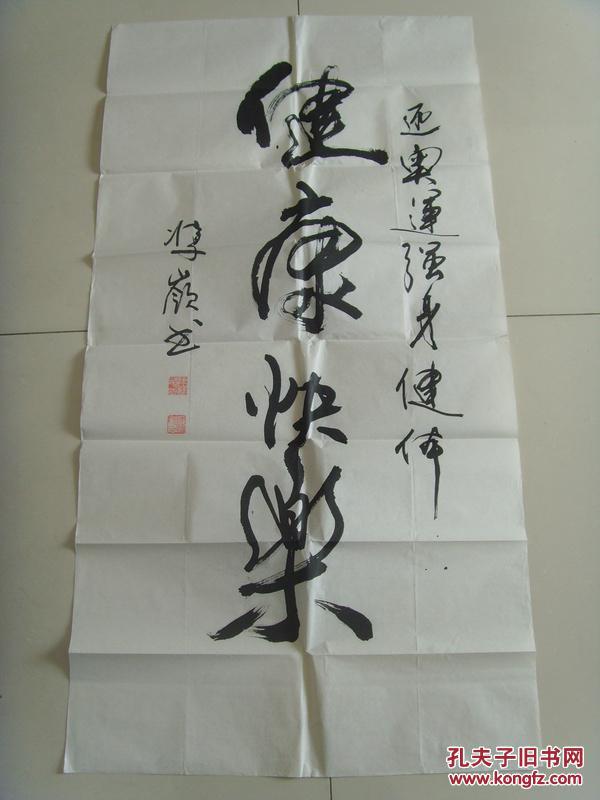 迎奥运强身健体
健康快樂
嶺书
孔夫子旧书网
www.kongfz.com